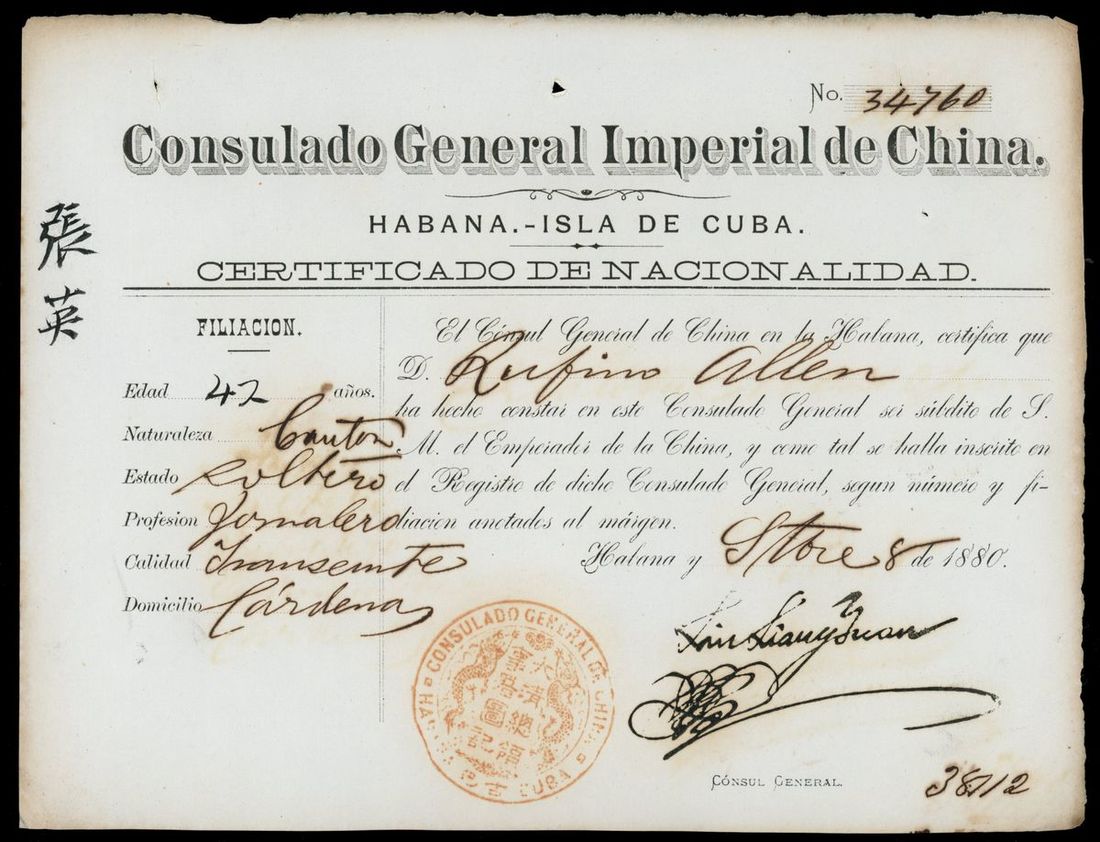 No. 34760
Consulado General Imperial de China.
HABANA.-ISLA DE CUBA.
CERTIFICADO DE NACIONALIDAD.
張英
FILIACION.
Edad 42 años.
Naturaleza Canton
Estado soltero
Profesion Jornalero
Calidad Transeunte
Domicilio Cárdenas
El Cónsul General de China en la Habana, certifica que
D. Rufino Allen
ha hecho constar en este Consulado General ser súbdito de S.
M. el Emperador de la China, y como tal se halla inscrito en
el Registro de dicho Consulado General, segun número y fi-
liacion anotados al márgen.
Habana y Stbre 8 de 1880.
Lin Liang Yuan
CONSULADO GENERAL DE CHINA
HABANA CUBA
大清總領
事官圖記
CÓNSUL GENERAL.